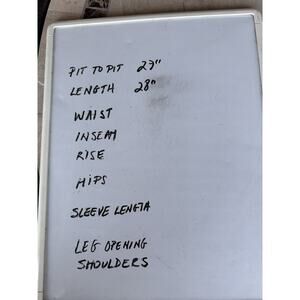 PIT TO PIT 23"
LENGTH 28"
WAIST
INSEAM
RISE
HIPS
SLEEVE LENGTH
LEG OPENING
SHOULDERS